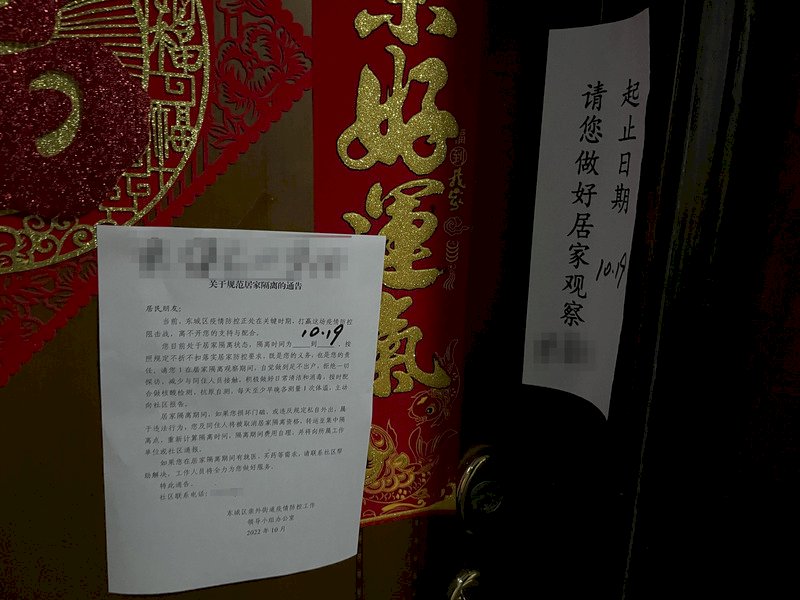 关于规范居家隔离的通告
居民朋友：
当前，东城区疫情防控正处在关键时期，打赢这动疫情防控
阻击战，离不开您的支持与配合。
您目前处于居家隔离状态，隔离时间为 10.19 到 ，按
照规定不折不扣落实居家防控要求，既是您的义务，也是您的责
任。请您在居家隔离观察期间，自觉做到足不出户，拒绝一切
探访，减少与同住人员接触，积极做好日常清洁和消毒，按时配
合做核酸检测、抗原自测，每天至少早晚各测量1次体温，主动
向社区报告。
居家隔离期间，如果您损坏门磁，或违反规定私自外出，属
于违法行为，您及同住人将被取消居家隔离资格，转运至集中隔
离点，重新计算隔离时间，隔离期间费用自理，并将向所属工作
单位或社区通报。
如果您在居家隔离期间有就医、买药等需求，请联系社区帮
助解决，工作人员将全力为您做好服务。
特此通告。
社区联系电话：
东城区崇外街道疫情防控工作
领导小组办公室
2022年10月
好運氣
福到我家
起止日期 10.19
请您做好居家观察
福